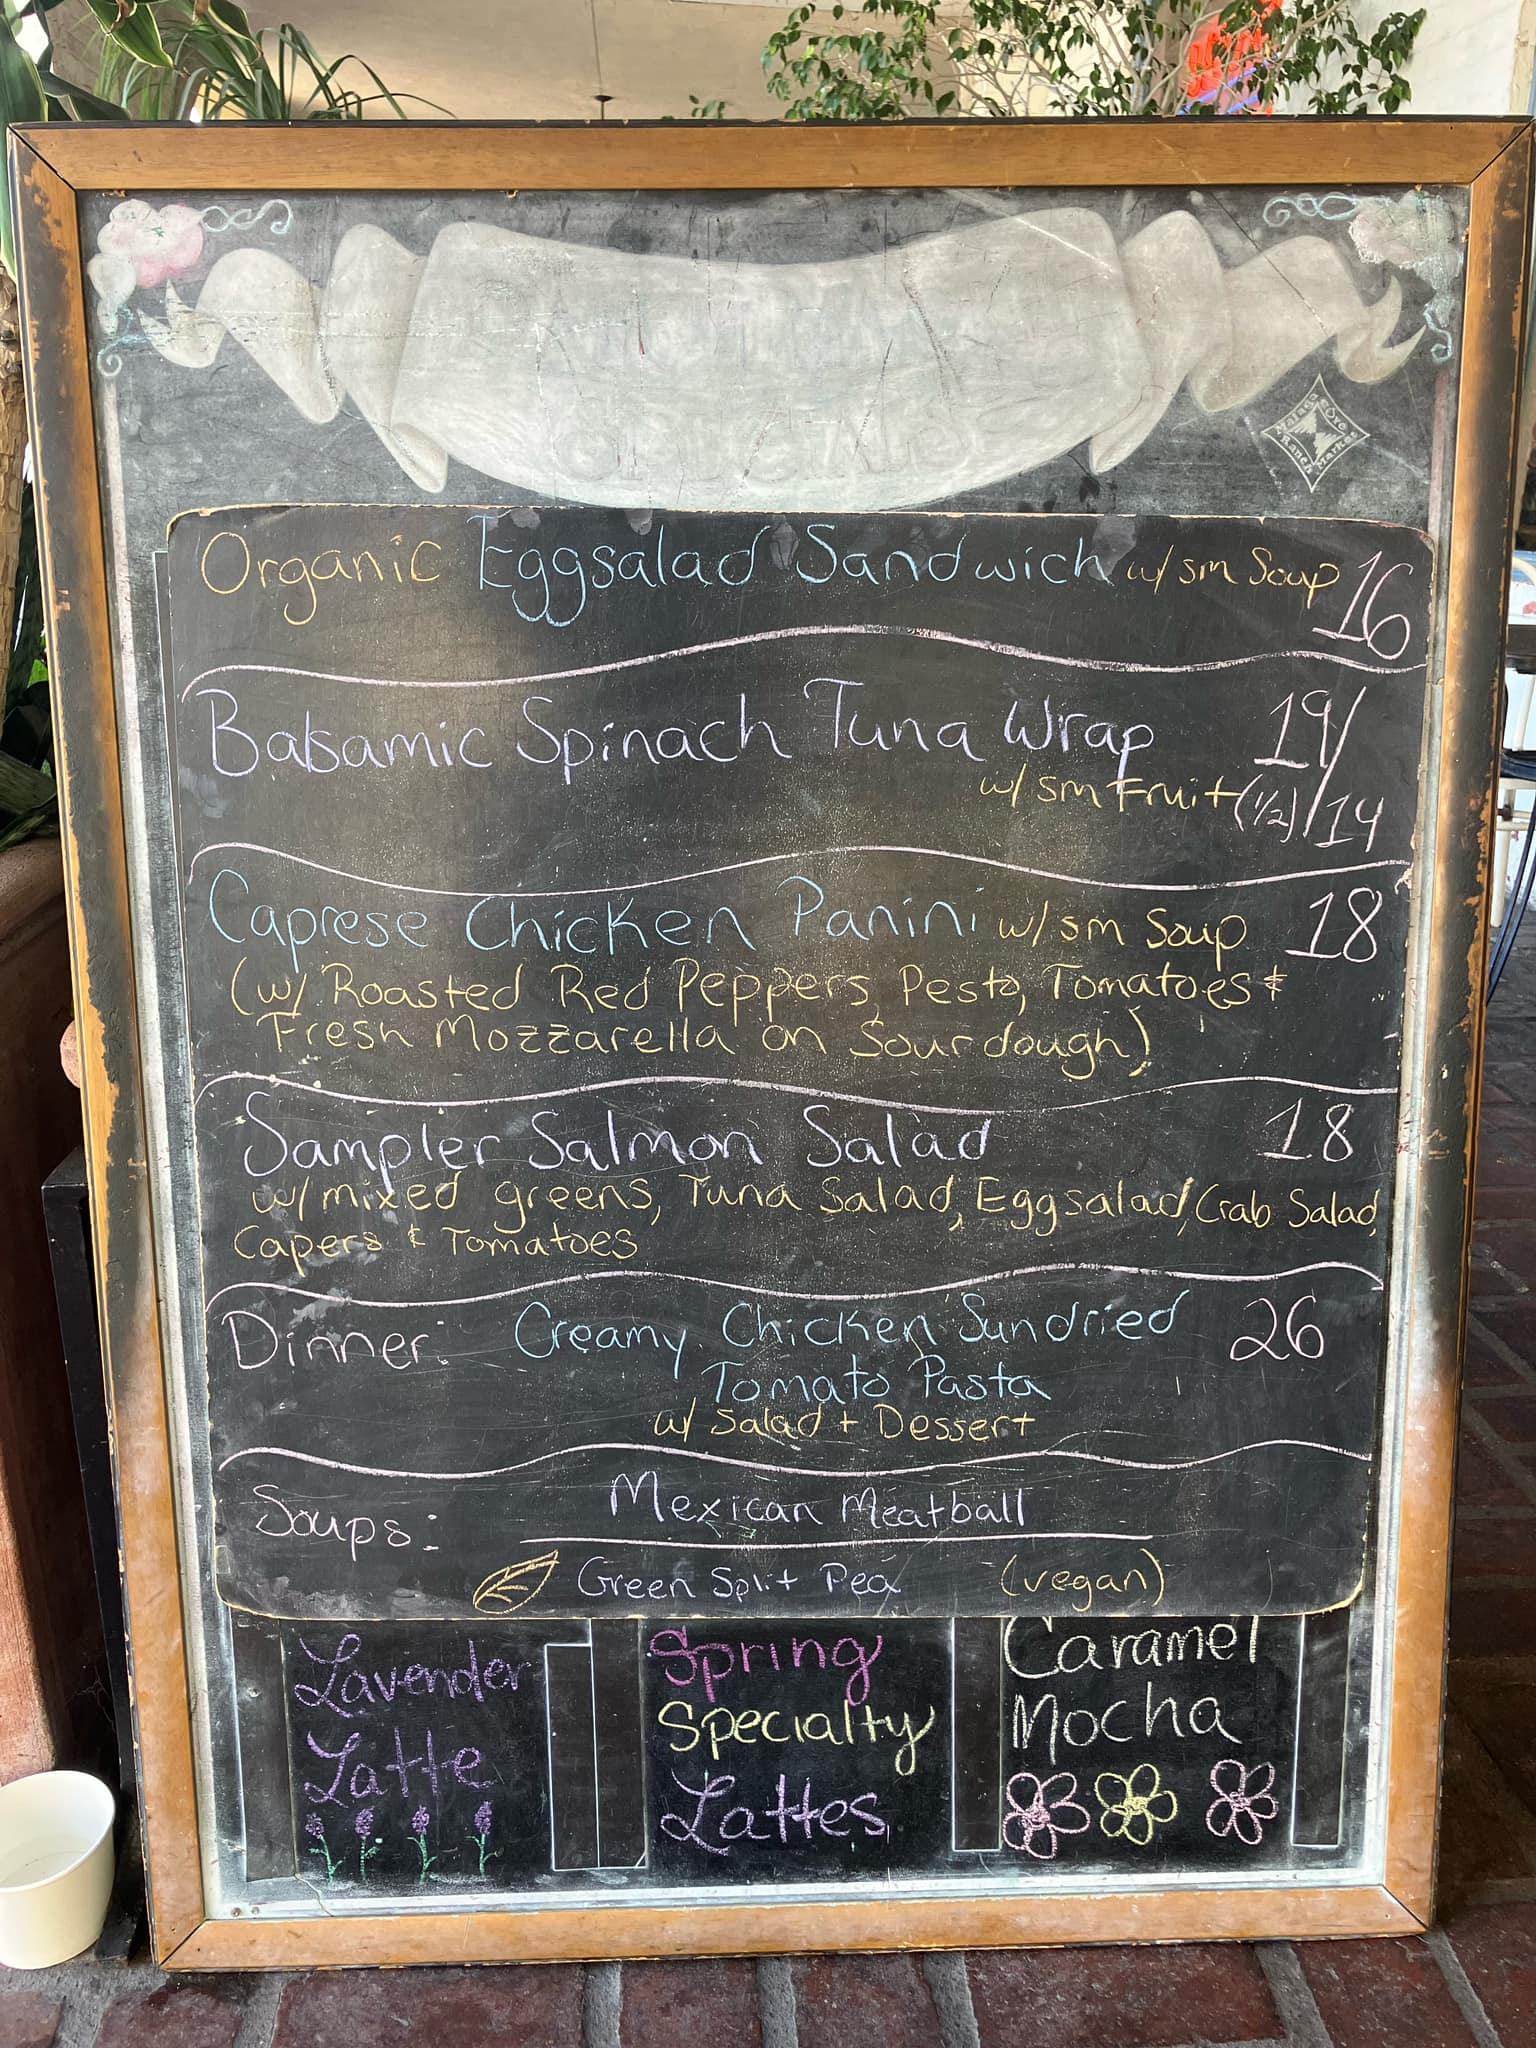 Malaga Cove
Ranch Market
Organic Eggsalad Sandwich w/ sm Soup 16
Balsamic Spinach Tuna Wrap 19/
w/ sm Fruit (1/2) /14
Caprese Chicken Panini w/ sm Soup 18
(w/ Roasted Red Peppers, Pesto, Tomatoes &
Fresh Mozzarella on Sourdough)
Sampler Salmon Salad 18
w/ mixed greens, Tuna Salad, Eggsalad, Crab Salad,
Capers & Tomatoes
Dinner: Creamy Chicken Sundried 26
Tomato Pasta
w/ Salad + Dessert
Soups: Mexican Meatball
Green Split Pea (vegan)
Lavender
Latte
Spring
Specialty
Lattes
Caramel
Mocha